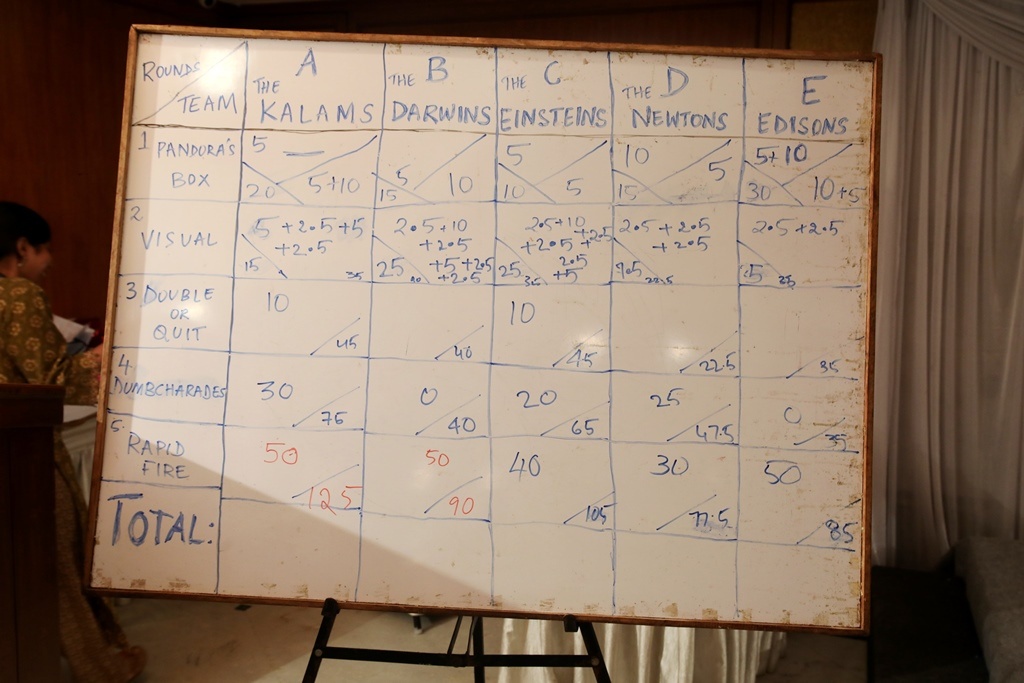 ROUNDS TEAM A THE KALAMS B THE DARWINS C THE EINSTEINS D THE NEWTONS E EDISONS
1 PANDORA'S BOX
5 — 5+10 20
5 10 15
5 5 10
10 5 15
5+10 10+5 30
2 VISUAL
5+2.5+5
+2.5
15 35
2.5+10
+2.5
+5+2.5
+2.5
25 40
2.5+10
+2.5+2.5
2.5
+5
25 35
2.5+2.5
+2.5
22.5
2.5+2.5
3 DOUBLE OR QUIT
10 45
40
10 45
22.5
35
4. DUMBCHARADES
30 75
0 40
20 65
25 47.5
0 35
5. RAPID FIRE
50 125
50 90
40 105
30 77.5
50 85
TOTAL: